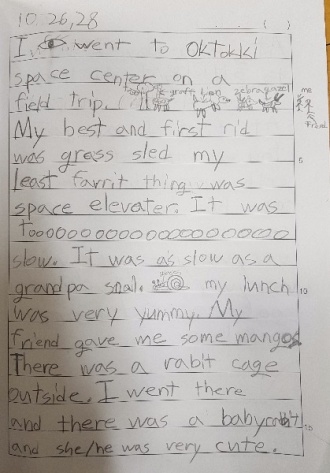 10.26,28 ( )
I, went to OKTOKKi
space center on a
field trip.
graff lion zebra gazel me
Friend
My best and first rid
was grass sled my
5
least favrit thing was
space elevater. It was
toooooooooooooooooo
slow. It was as slow as a
grandpa snal. my lunch
10
was very yummy. My
friend gave me some mangos
There was a rabit cage
outside. I went there
and there was a baby rabit
15
and she/he was very cute.